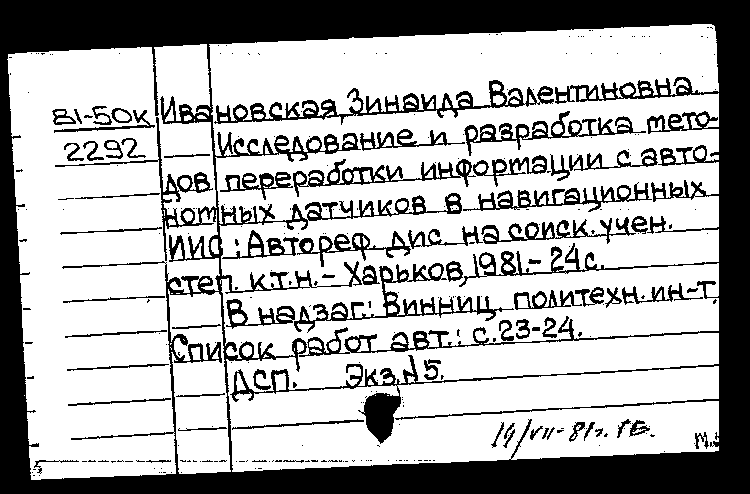 81-50к Ивановская, Зинаида Валентиновна.
2292 Исследование и разработка мето-
дов переработки информации с авто-
номных датчиков в навигационных
ИИС : Автореф. дис. на соиск. учен.
степ. к.т.н. - Харьков, 1981. - 24с.
В надзаг.: Винниц. политехн. ин-т.
Список работ авт.: с.23-24.
ДСП. Экз.N5.
19/VII-81г.